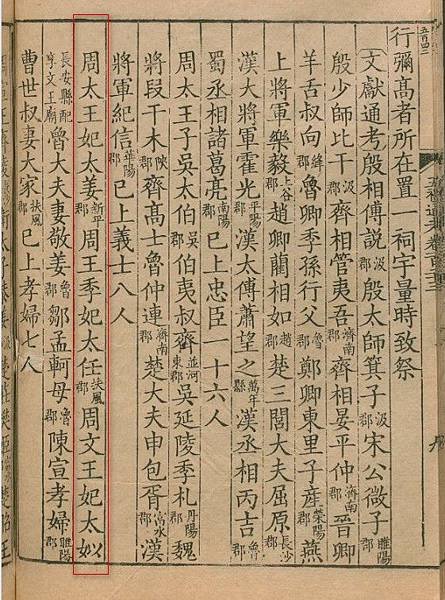 行彌高者所在置一祠宇量時致祭
文獻通考殷相傅說汲郡殷太師箕子汲郡宋公微子睢陽郡
殷少師比干汲郡齊相管夷吾濟南郡齊相晏平仲濟南郡晉卿
羊舌叔向絳郡魯卿季孫行父魯郡鄭卿東里子產滎陽郡燕
上將軍樂毅上谷郡趙卿藺相如趙郡楚三閭大夫屈原長沙郡
漢大將軍霍光平陽郡漢太傅蕭望之萬年縣漢丞相丙吉魯郡
蜀丞相諸葛亮南陽郡已上忠臣一十六人
周太王子吳太伯吳郡伯夷叔齊並河東郡吳延陵季札丹陽郡魏
將段干木陝郡齊高士魯仲連濟南郡楚大夫申包胥富水郡漢
將軍紀信華陽郡已上義士八人
周太王妃太姜新平郡周王季妃太任扶風郡周文王妃太姒
長安縣配享文王廟魯大夫妻敬姜魯郡鄒孟軻母魯郡陳宣孝婦睢陽郡
曹世叔妻大家扶風郡已上孝婦七人